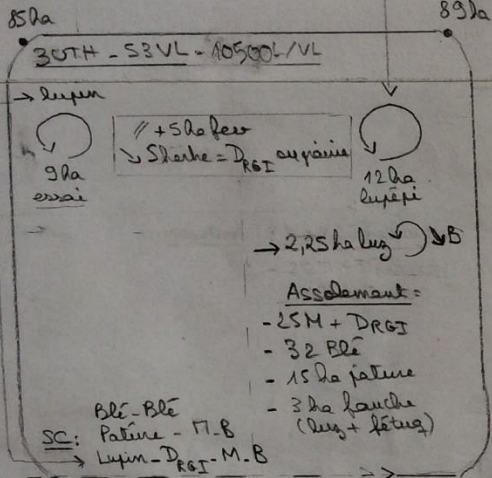 85ha
89ha
3UTH - 53VL - 10500L/VL
→ lupin
9ha
essai
// +5ha fev
↘ Sherbe = DRGI ou prairie
12ha
lupépi
→ 2,25ha luz ↘B
Assolement :
- 25M + DRGI
- 32 Blé
- 15ha pature
- 3ha fauche
(luz + fétuq)
SC :
Blé-Blé
Pature - M-B
→ Lupin-DRGI-M-B